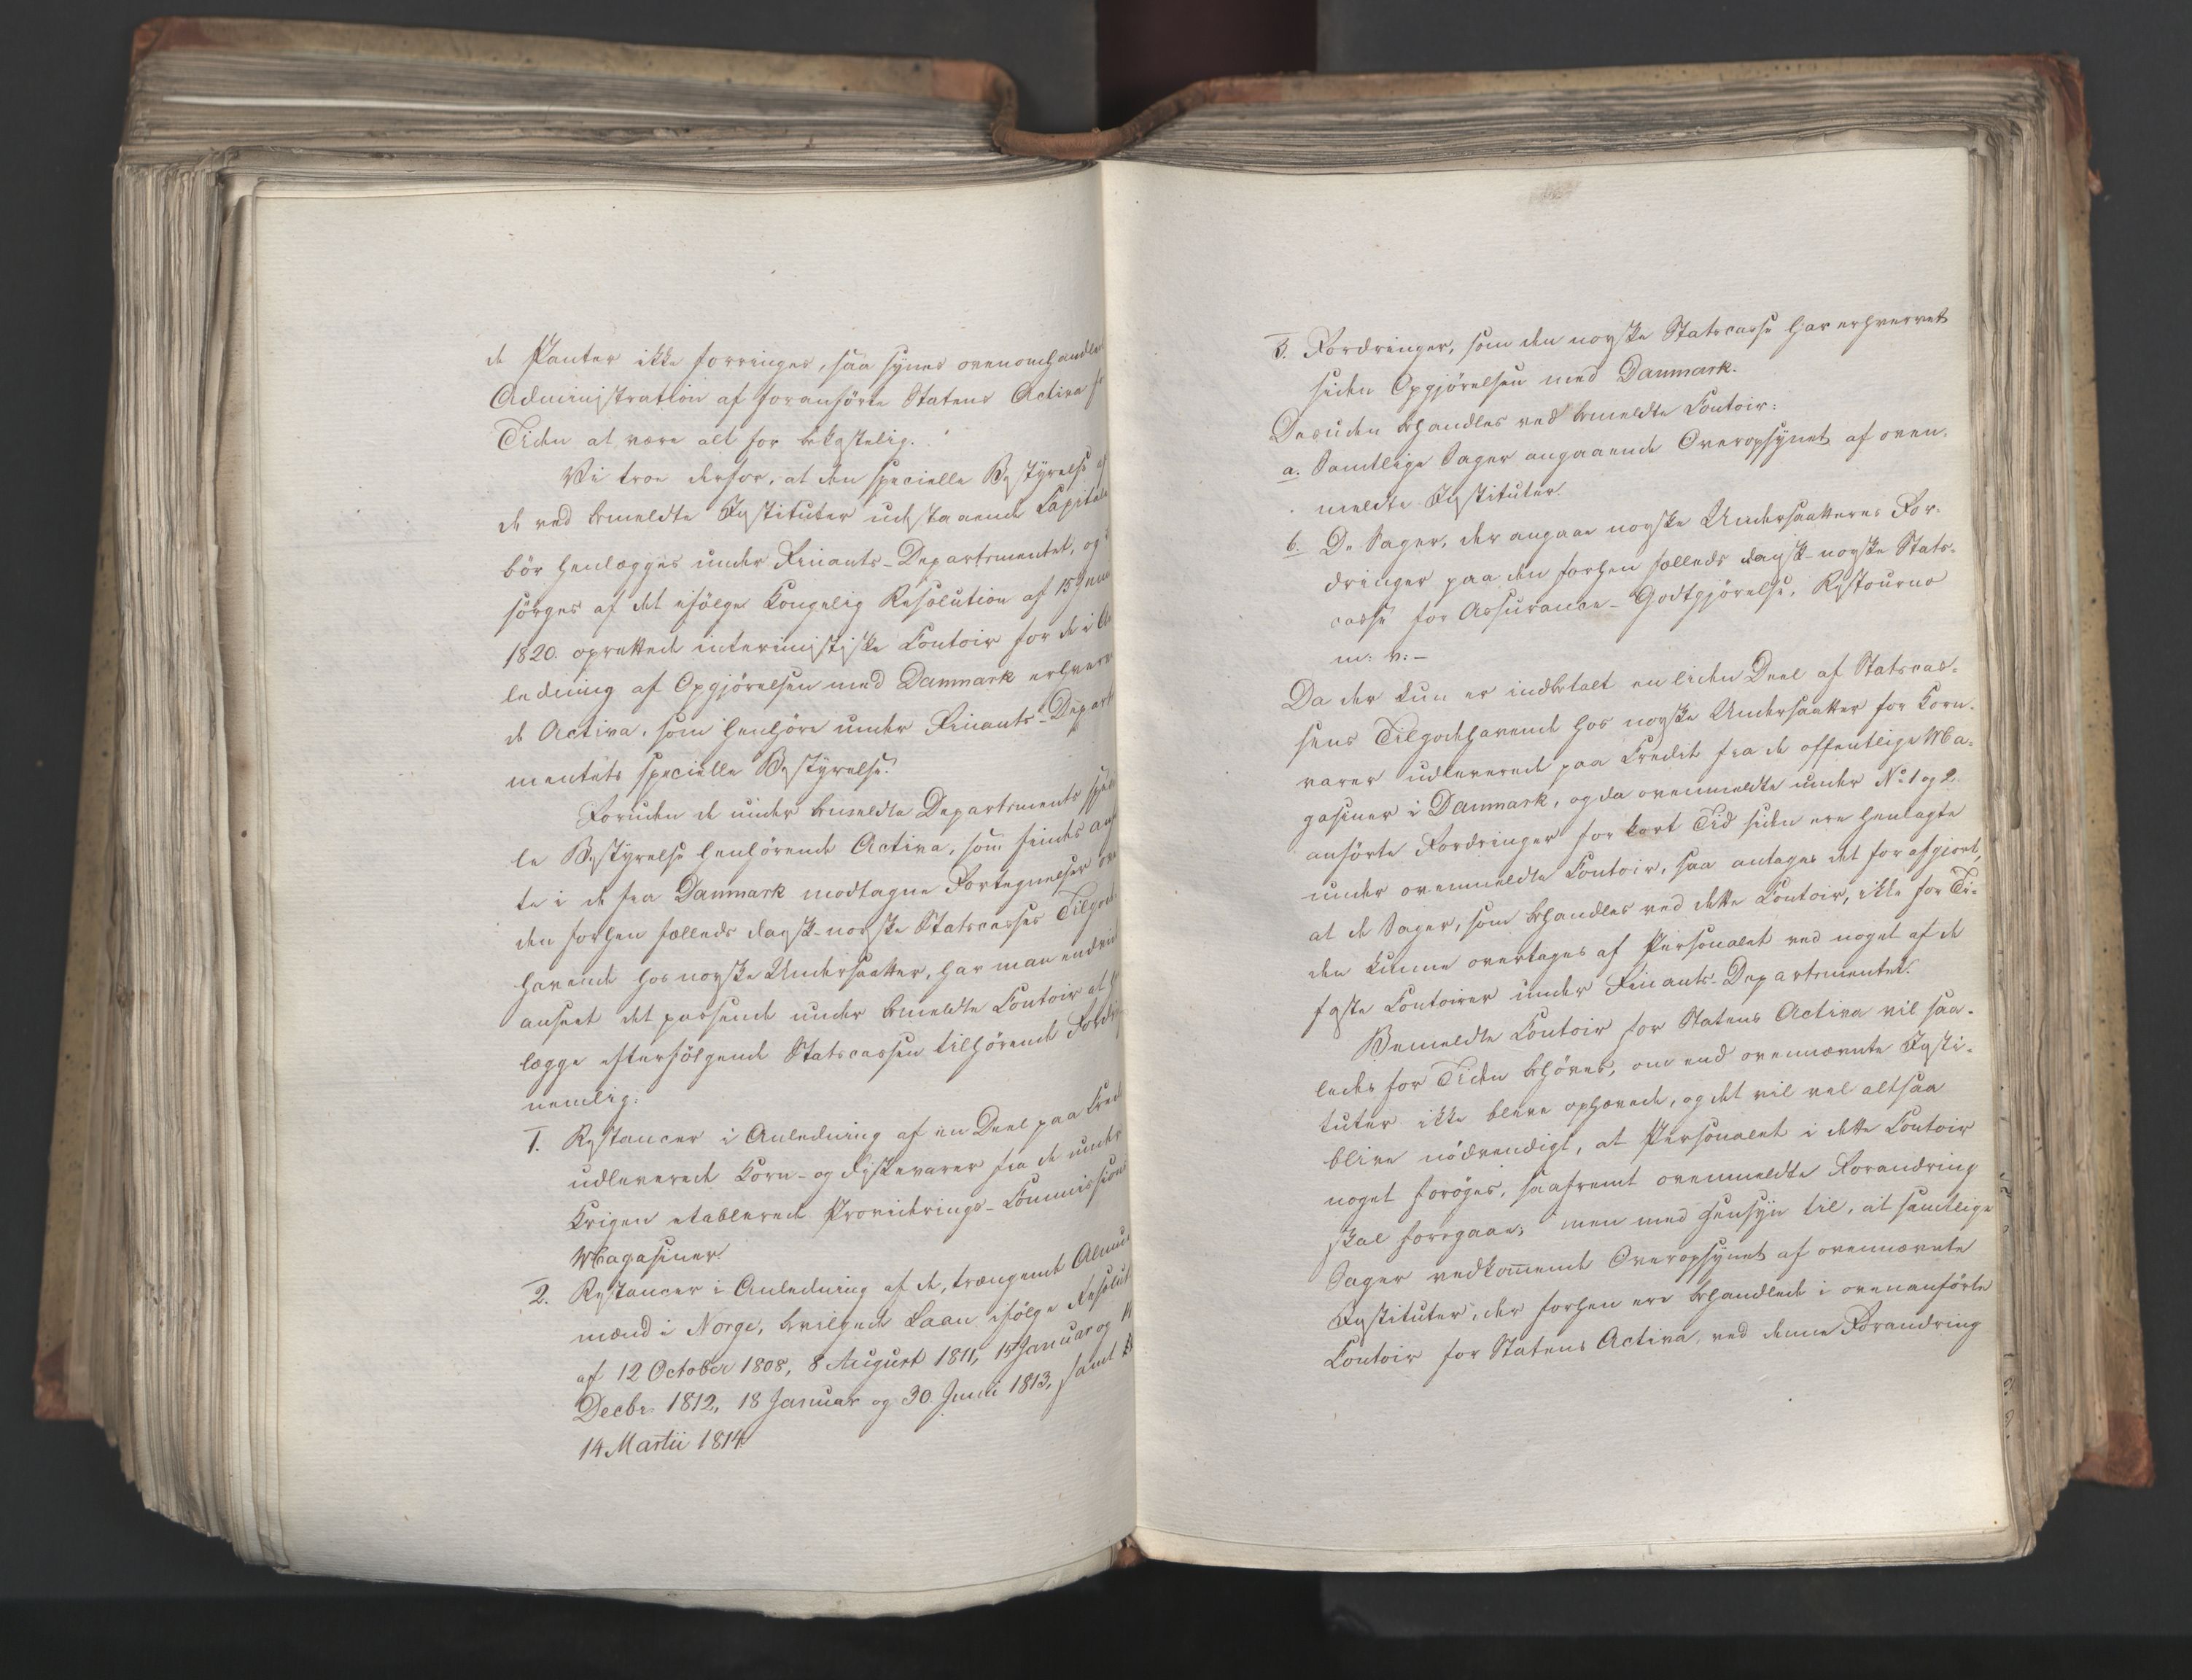 de Panter ikke forringes, saa synes ovenomhandle
Administration af foranförte Statens Activa f
Tiden at være alt for bekostelig.
Vi troe derfor, at den specielle Bestyrelse af
de ved bemeldte Institutter udestaaende Capitale
bör henlægges under Finants-Departementet, og
sörges af det ifölge Kongelig Resolution af 15 Juni
1820 oprettede interimistiske Contoir for de i An
ledning af Opgjörelsen med Danmark erhverv
de Activa, som henhöre under Finants-Depart
mentets specielle Bestyrelse.
Foruden de under bemeldte Departements speci
le Bestyrelse henhörende Activa, som findes anf
te i de fra Danmark modtagne Fortegnelser ov
den forhen fælleds dansk-norske Statscasses Tilgode
havende hos norske Undersaatter, har man endvid
anseet det passende under bemeldte Contoir at h
lægge efterfölgende Statscassen tilhörende Fordri
nemlig:
1. Restancer i Anledning af en Deel paa Cred
udleverede Korn- og Fiskevarer fra de under
Krigen etablerede Provideringe-Commissions
Magasiner.
2. Restancer i Anledning af de, trængende Almue
mænd i Norge, bevilgede Laan ifölge Resolut
af 12 October 1808, 8 August 1811, 15 Januar og 11
Decbr 1812, 18 Januar og 30 Juni 1813, samt
14 Martii 1814
3. Fordringer, som den norske Statscasse har erhvervet
siden Opgjörelsen med Danmark.
Desuden behandles ved bemeldte Contoir:
a. Samtlige Sager angaaende Overopsynet af oven-
meldte Institutter.
b. De Sager, der angaae norske Undersaatteres For-
dringer paa den forhen fælleds dansk-norske Stats-
casse for Assurance-Godtgjörelse, Restourno
m: v: –
Da der kun er indbetalt en liden Deel af Statscas-
sens Tilgodehavende hos norske Undersaatter for Korn-
varer udleverede paa Credit fra de offentlige Ma-
gasiner i Danmark, og da ovenmeldte under No 1 og 2
anförte Fordringer for kort Tid siden ere henlagte
under ovenmeldte Contoir, saa antages det for afgjort,
at de Sager, som behandles ved dette Contoir, ikke for Ti-
den kunne overtages af Personalet ved noget af de
faste Contoirer under Finants-Departementet.
Bemeldte Contoir for Statens Activa vil saa-
ledes for Tiden behöves, om end ovennævnte Insti-
tuter ikke bleve ophævede, og det vil vel altsaa
blive nödvendigt, at Personalet i dette Contoir
noget foröges, saafremt ovenmeldte Forandring
skal foregaae; men med Hensyn til, at samtlige
Sager vedkommende Overopsynet af ovennævnte
Institutter, der forhen ere behandlede i ovenanförte
Contoir for Statens Activa, ved denne Forandring